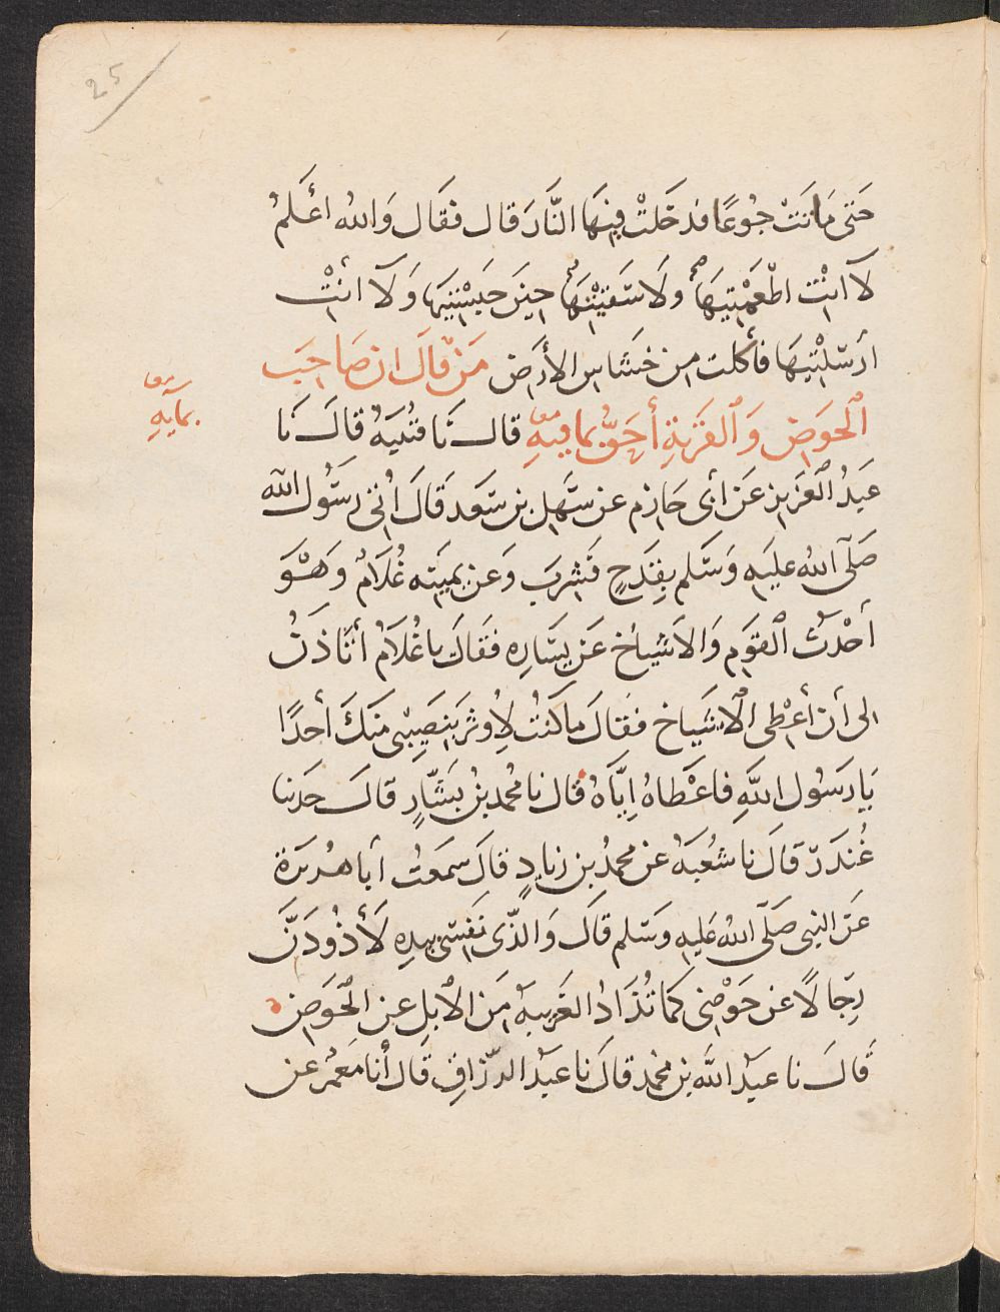 25
حَتَّى مَاتَتْ جُوْعًا فدَخَلتْ فِيْهَا النَّارَ قال فقَال وَالله اعْلَمُ
لَا انْتِ اطْعَمْتِيهَا ولَا سَقَيْتِهَا حِيْنَ حَبَسْتِيهَا وَلَا انْتِ
ارْسَلْتِيهَا فأكَلَت مِن خشَاسِ الأرْض مَنْ قَالَ ان صَاحِبَ
الْحَوْضِ وَالقِرْبَةِ أَحَقُّ بِمَا فيهِ قالَ نَا قتُيبَةُ قالَ نَا
بمايِهِ
عَبْدُ العَزِيزِ عَن أبى حَازِم عن سَهْلِ بن سَعد قَالَ أُتِىَ رسَوُل الله
صَلَّى الله عليهِ وَسَلَّم بِقَدَحٍ فَشرِبَ وَعن يمينِه غُلامٌ وَهْوَ
أَحْدَثُ القوَمِ وَالاشيَاخ عَن يَسَارِهِ فقَالَ يا غُلَامُ أَتَاذنُ
لى أن أعْطِى الْاشيَاخ فقالَ ما كنتُ لِأُوثرَ بنَصِيبى منكَ أحدًا
يَا رَسُول اللَّهِ فاعْطاهُ اِيَّاهُ قال نا محُمد بنُ بَشَّارٍ قالَ حدثنا
غُندَرٌ قالَ نا شُعْبَةُ عن محمدُ بن زيادٍ قالَ سمَعْتُ أبا هُريرَة
عَن النبى صَلَّى الله عَليهِ وَسَلم قالَ وَالذّى نَفسِى بيدِهِ لَأَذُودَنَّ
رِجَالًا عن حَوْضِى كَما تُذَادُ الغَرِيبةُ مَن الْابِلِ عن الْحَوَضِ
قَالَ نا عَبدُ الله بن محمد قالَ نَا عَبْدُ الرّزاقِ قالَ أنا مَعمُر عن